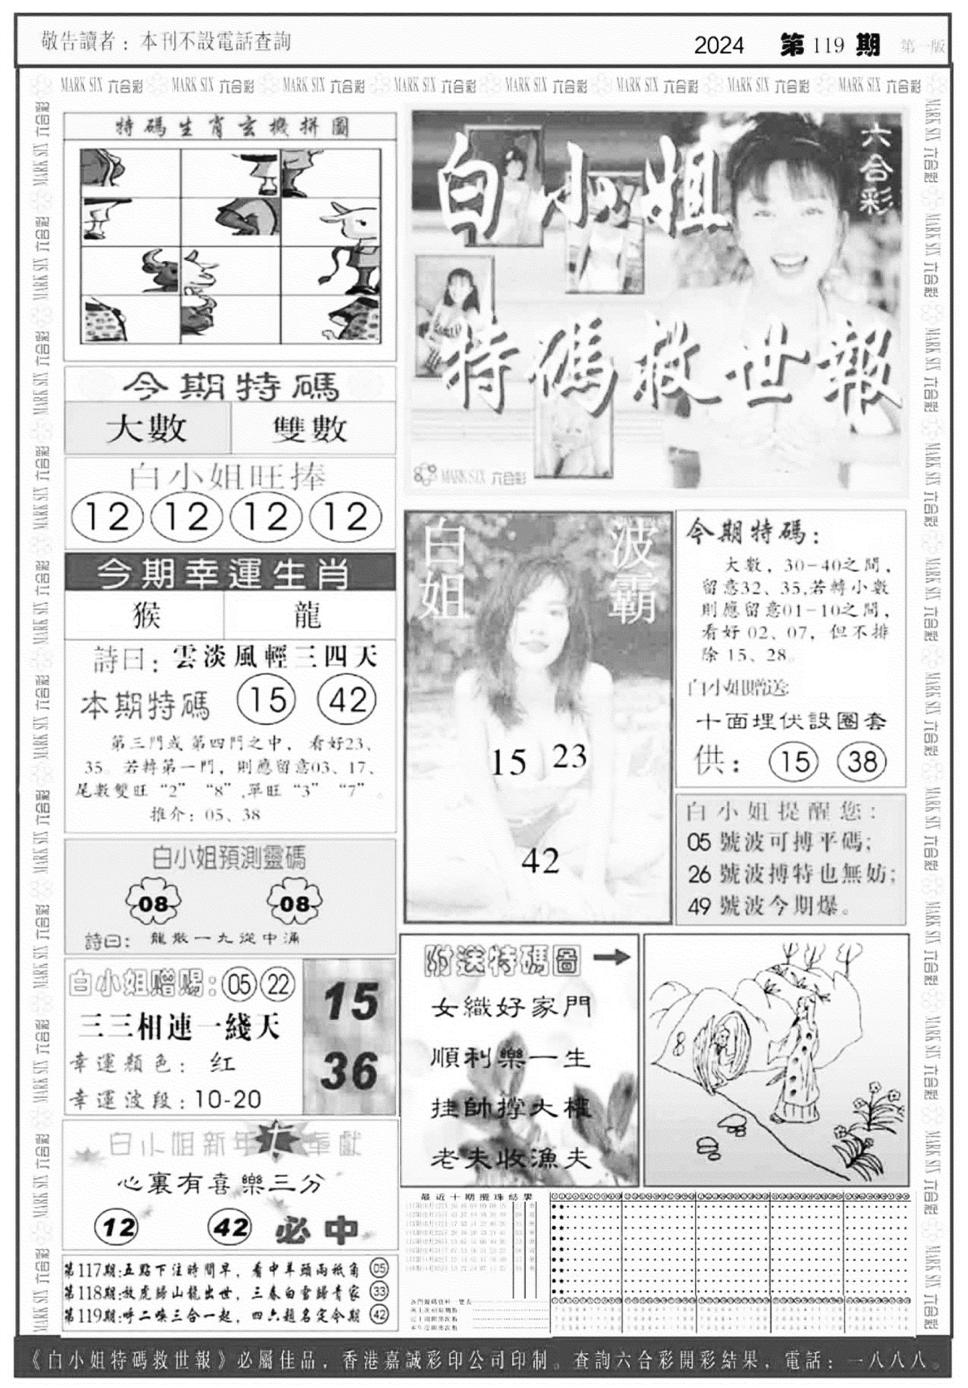 敬告讀者：本刊不設電話查詢
2024 第119期 第一版
MARK SIX 六合彩 MARK SIX 六合彩 MARK SIX 六合彩 MARK SIX 六合彩 MARK SIX 六合彩 MARK SIX 六合彩 MARK SIX 六合彩 MARK SIX 六合彩
特碼生肖玄機拼圖
六合彩
白小姐
特碼救世報
MARK SIX 六合彩
今期特碼
大數 雙數
白小姐旺捧
12 12 12 12
今期幸運生肖
猴 龍
詩曰：雲淡風輕三四天
本期特碼 15 42
第三門或第四門之中，看好23、
35。若轉第一門，則應留意03、17、
尾數雙旺“2”“8”，單旺“3”“7”。
推介：05、38
白姐 波霸
15 23
42
今期特碼：
大數，30-40之間，
留意32、35，若轉小數
則應留意01-10之間，
看好02、07，但不排
除15、28。
白小姐贈送
十面埋伏設圈套
供：15 38
白小姐提醒您：
05 號波可搏平碼；
26 號波搏特也無妨；
49 號波今期爆。
白小姐預測靈碼
08 08
詩曰：龍散一九從中涌
白小姐赠赐：05 22
三三相連一綫天
幸運顏色：红
幸運波段：10-20
15
36
附送特碼圖
女織好家門
順利樂一生
挂帥撐大權
老夫收漁夫
8
白小姐新年大奉獻
心裏有喜樂三分
12 42 必中
第117期:五點下注時間早，看中羊頭兩祇角 05
第118期:放虎歸山龍出世，三春白雪歸青家 33
第119期:呼二喚三合一起，四六題名定今期 42
最近十期攪珠結果
《白小姐特碼救世報》必屬佳品，香港嘉誠彩印公司印制。查詢六合彩開彩結果，電話：一八八八。